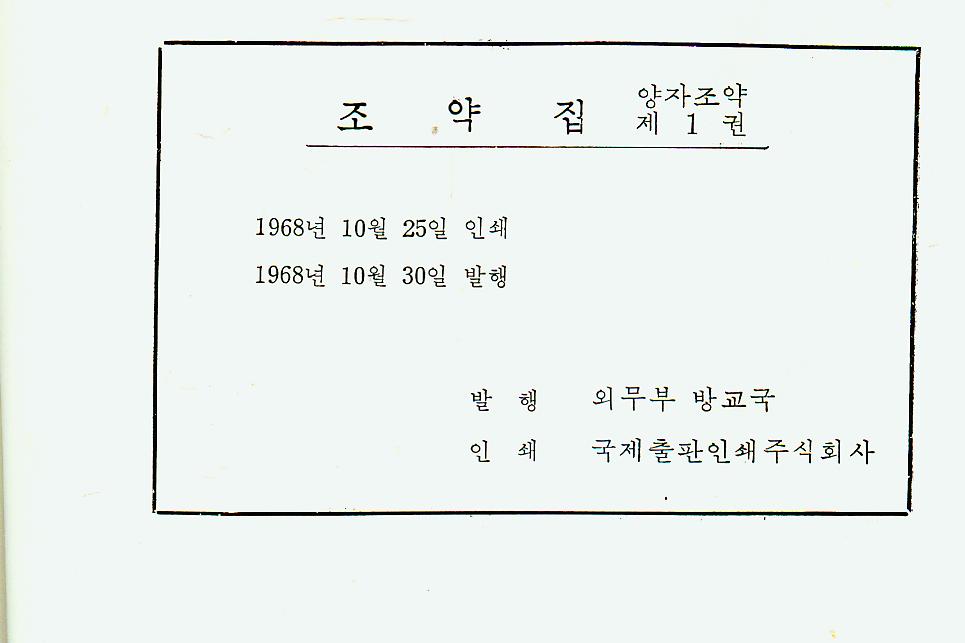 조 약 집 양자조약 제 1 권
1968년 10월 25일 인쇄
1968년 10월 30일 발행
발 행 외무부 방교국
인 쇄 국제출판인쇄주식회사